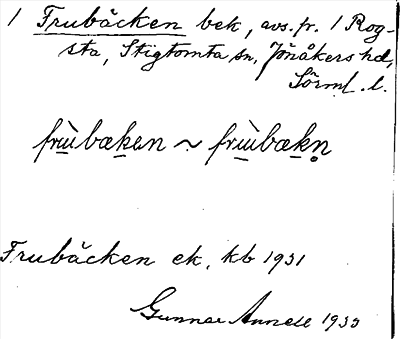 1 Frubäcken bek, avs. fr. 1 Rog-
sta, Stigtomta sn, Jönåkers hd,
Sörml. l.
frùbæken ~ frùbækn̥
Frubäcken ek. kb 1931
Gunnar Annell 1933